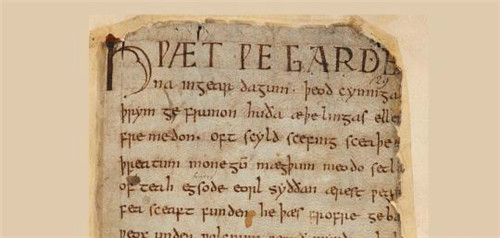 HǷÆT ǷE GARDE
129
na ingear dagum · þeod cyninga
þrym ge frunon huða æþelingas elle
fre medon. oft scyld scefing sceaþe
þreatum monegū mægþum meodo setla
of teah egsode eorl syððan ærest ƿe
fea sceaft funden he þæs frofre geba
ƿeox under ƿolcnum